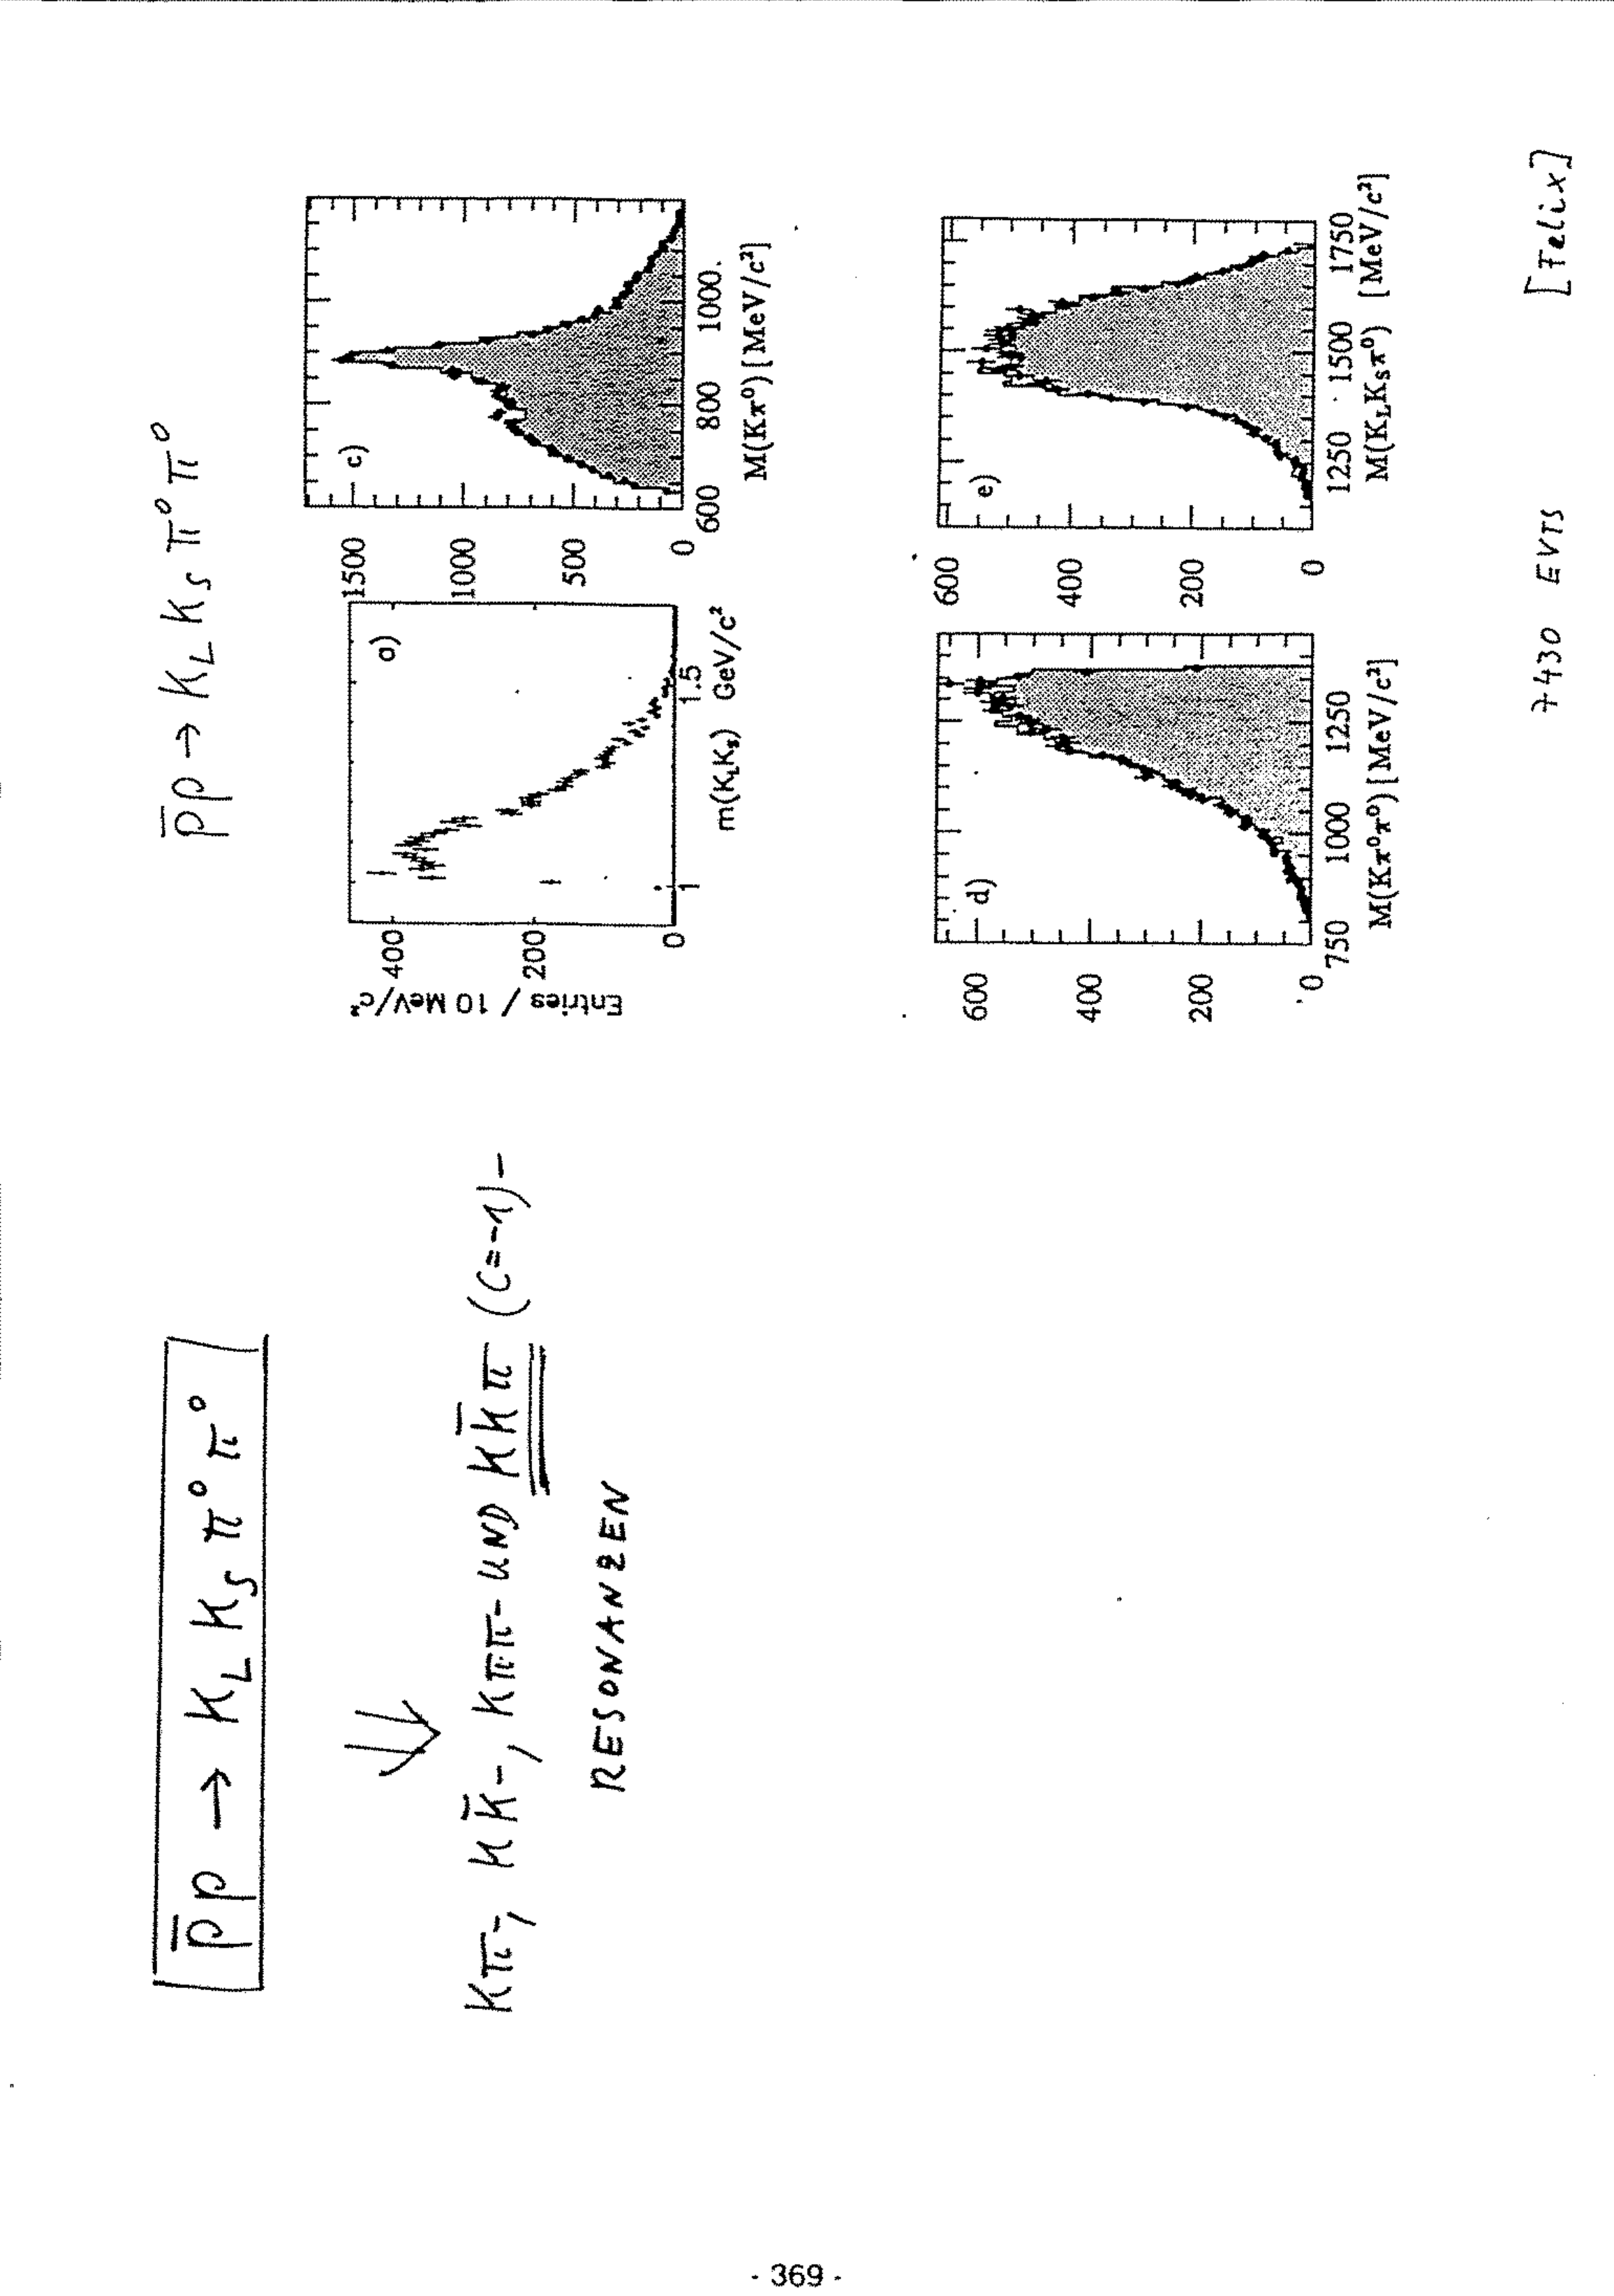 p̄p → K_L K_S π⁰ π⁰
⇓
Kπ-, KK̄-, Kππ- UND KK̄π (C=-1) -
RESONANZEN
p̄p → K_L K_S π⁰ π⁰
a)
Entries / 10 MeV/c²
400
200
0
1
1.5
m(K_L K_S) GeV/c²
c)
1500
1000
500
0
600 800 1000
M(Kπ⁰) [MeV/c²]
d)
600
400
200
0
750 1000 1250
M(Kπ⁰π⁰) [MeV/c²]
e)
600
400
200
0
1250 1500 1750
M(K_L K_S π⁰) [MeV/c²]
7430 EVTS [Felix]
- 369 -